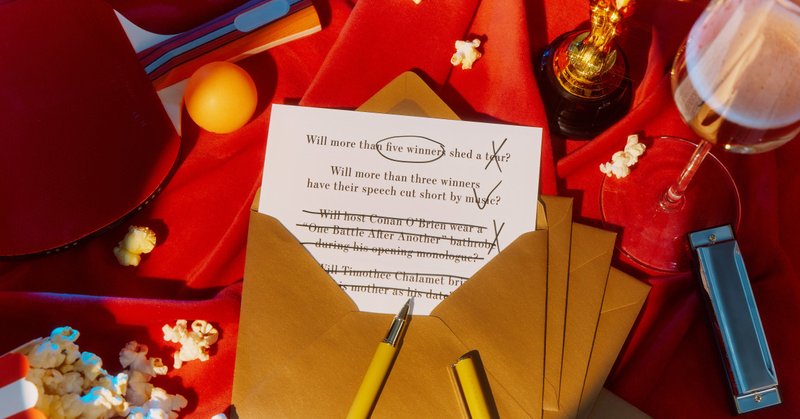 Will more than five winners shed a tear?
Will more than three winners
have their speech cut short by music?
Will host Conan O'Brien wear a
"One Battle After Another" bathrobe
during his opening monologue?
Will Timothée Chalamet bri
is mother as his dat